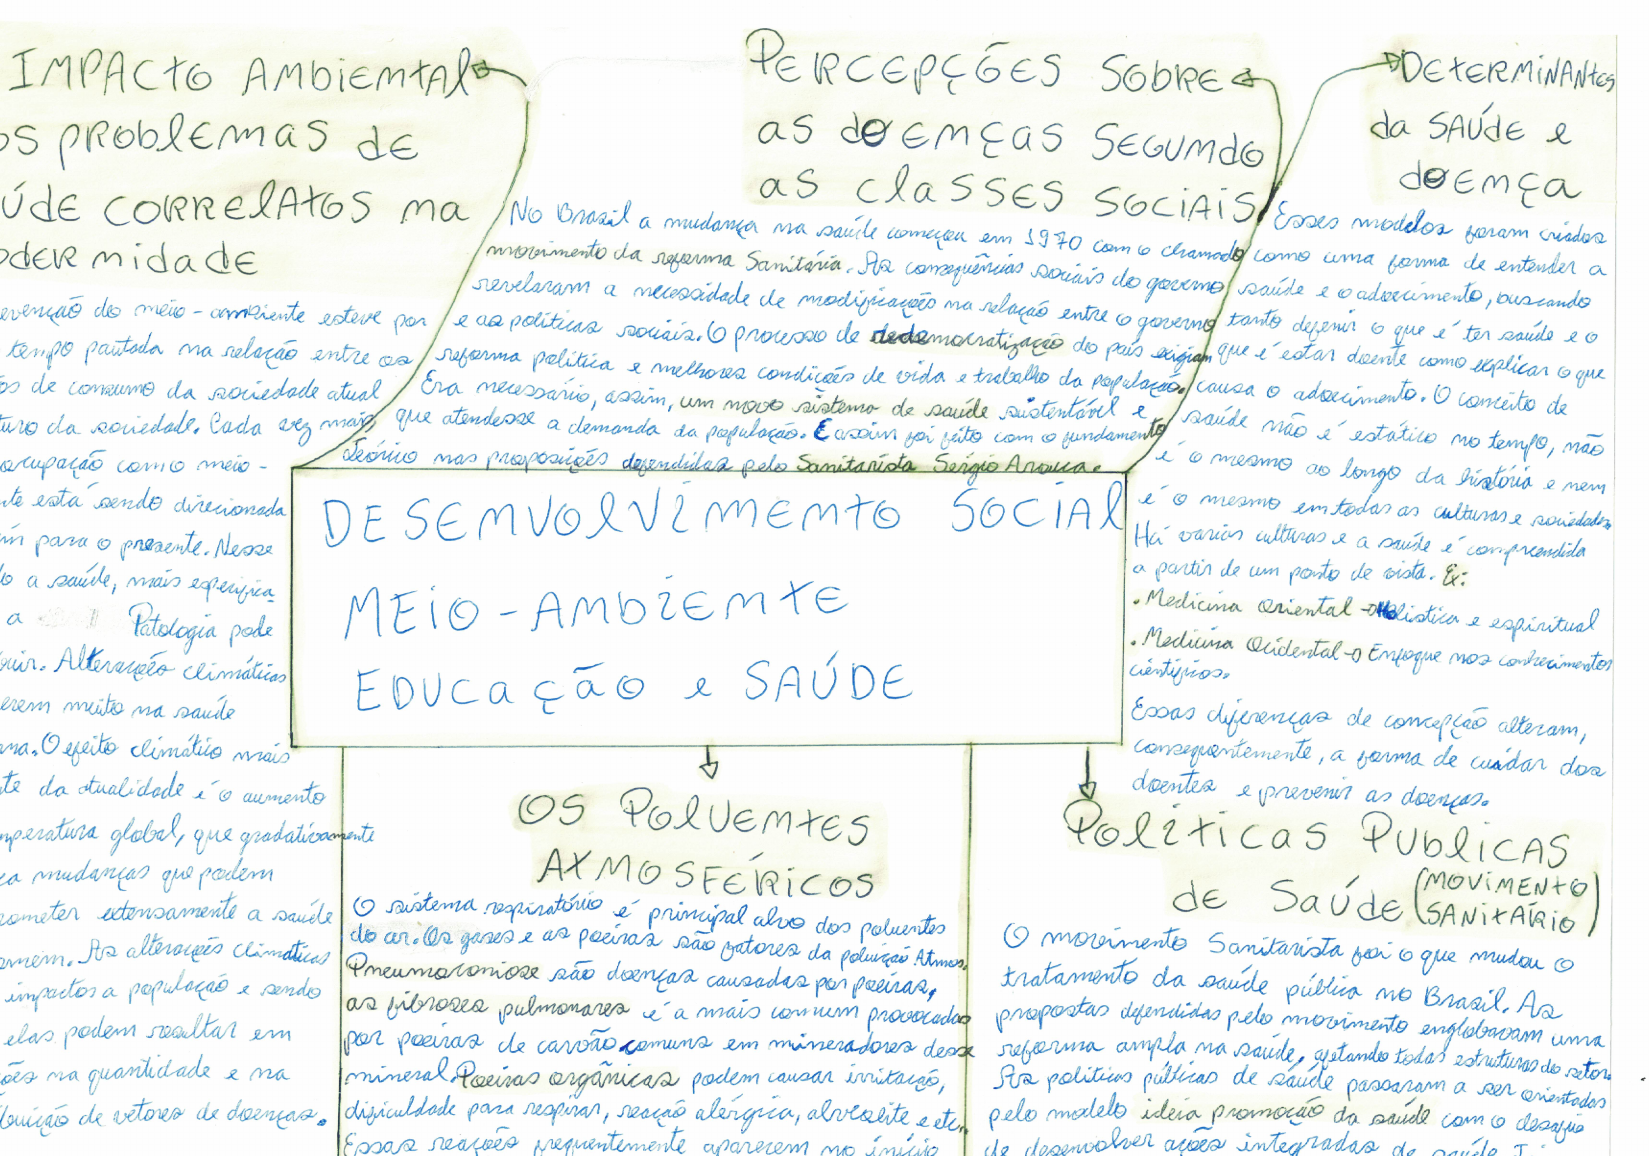 IMPACTO AMBIEMTAL
OS PROBLEMAS DE
ÚDE CORRELATOS MA
ODERMIDADE
evenção do meio-ambiente esteve por
tempo pautada na relação entre os
os de consumo da sociedade atual
turo da sociedade. Cada vez mais
ocupação com o meio-
nte está sendo direcionada
m para o presente. Nesse
o a saúde, mais especifica
a Patologia pode
uir. Alteração climáticas
erem muito na saúde
ana. O efeito climático mais
te da atualidade é o aumento
mperatura global, que gradativamente
ca mudanças que podem
ometer extensamente a saúde
mem. As alterações climáticas
impactos a população e sendo
elas podem resultar em
ões na quantidade e na
buição de vetores de doenças.
PERCEPÇÕES SOBRE
AS DOEMÇAS SEGUMDO
AS CLASSES SOCIAIS
No Brasil a mudança na saúde começou em 1970 com o chamado
movimento da reforma Sanitária. As consequências sociais do governo
revelaram a necessidade de modificações na relação entre o governo
e as políticas sociais. O processo de redemocratização do país exigiam
reforma política e melhores condições de vida e trabalho da população.
Era necessário, assim, um novo sistema de saúde sustentável e
que atendesse a demanda da população. E assim foi feito com o fundamento
teórico nas proposições defendidas pelo Sanitarista Sérgio Arouca.
DETERMINANTES
da SAÚDE e
dOEMÇA
Esses modelos foram criados
como uma forma de entender a
saúde e o adoecimento, buscando
tanto definir o que é ter saúde e o
que é estar doente como explicar o que
causa o adoecimento. O conceito de
saúde não é estático no tempo, não
é o mesmo ao longo da história e nem
é o mesmo em todas as culturas e sociedades
Há varias culturas e a saúde é compreendida
a partir de um ponto de vista. Ex:
. Medicina Oriental → Holistica e espiritual
. Medicina Ocidental → Enfoque nos conhecimentos
científicos.
Essas diferenças de concepção alteram,
consequentemente, a forma de cuidar dos
doentes e prevenir as doenças.
DESEMVOLVIMEMTO SOCIAL
MEIO-AMBIEMTE
EDUCAÇÃO e SAÚDE
OS POLUEMTES
ATMOSFÉRICOS
O sistema respiratório é principal alvo dos poluentes
do ar. Os gases e as poeiras são fatores da poluição Atmos.
Pneumoconiose são doenças causadas por poeiras,
as fibroses pulmonares é a mais comum provocadas
por poeiras de carvão comuns em mineradores desse
mineral. Poeiras orgânicas podem causar irritação,
dificuldade para respirar, reação alérgica, alveolite e etc.
Essas reações frequentemente aparecem no início
POLÍTICAS PUBLICAS
de SAÚDE (MOVIMENTO
SANITÁRIO)
O movimento Sanitarista foi o que mudou o
tratamento da saúde pública no Brasil. As
propostas defendidas pelo movimento englobavam uma
reforma ampla na saúde, afetando todas estruturas do setor.
As politicas públicas de saúde passaram a ser orientadas
pelo modelo ideia promoção da saúde com o desafio
de desenvolver ações integradas de saúde